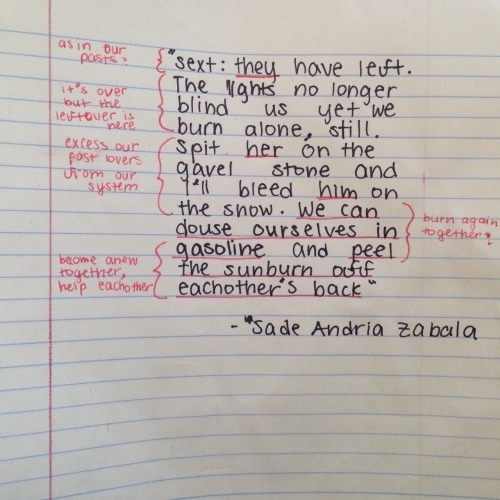 as in our
pasts?
"sext: they have left.
The lights no longer
blind us yet we
burn alone, still.
it's over
but the
leftover is
here
spit her on the
gavel stone and
I'll bleed him on
the snow. We can
excess our
past lovers
from our
system
douse ourselves in
gasoline and peel
burn again
together?
the sunburn off
eachother's back"
become anew
together,
help eachother
- "Sade Andria Zabala